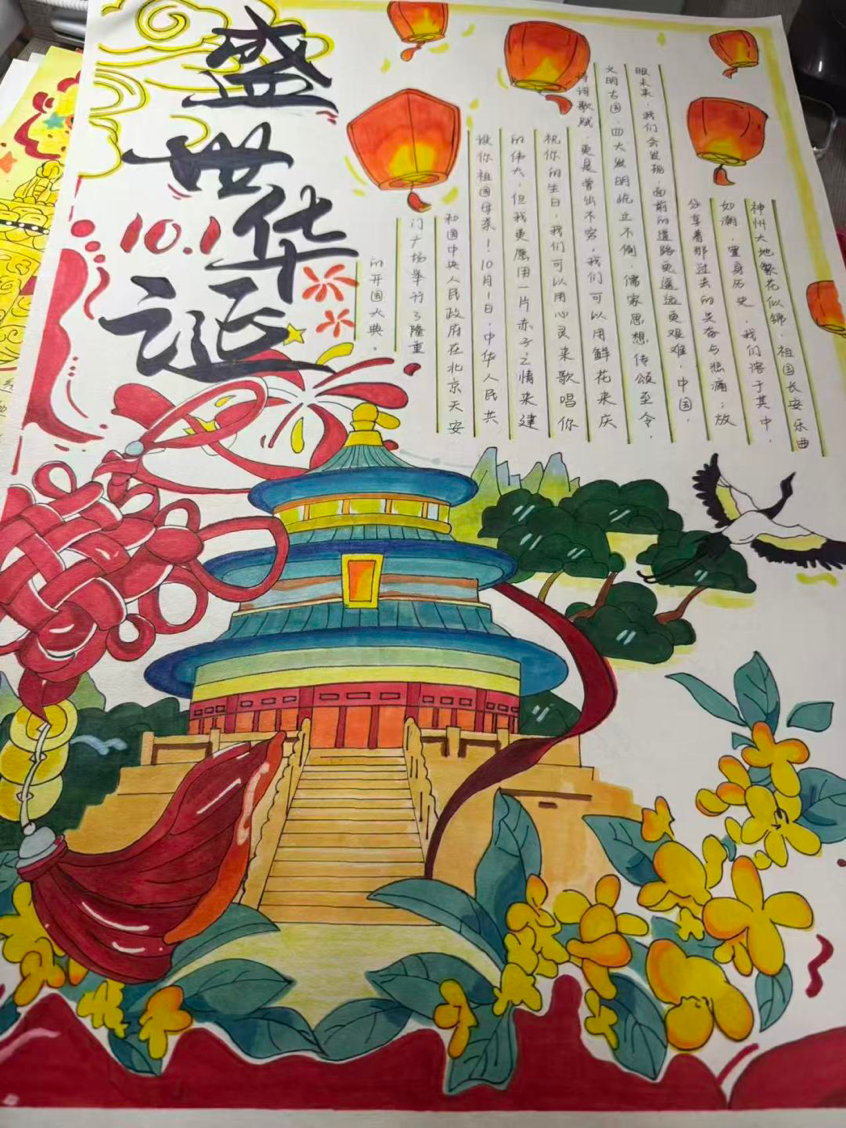 盛世华诞
10.1
神州大地繁花似锦，祖国长安乐曲
如潮，置身历史，我们溶于其中，
分享着那过去的兴奋与悲痛；放
眼未来，我们会发现，面前的道路更遥远更艰难，中国，
文明古国，四大发明屹立不倒，儒家思想传颂至今，
诗词歌赋，更是曾出不穷，我们可以用鲜花来庆
祝你的生日，我们可以用心灵来歌唱你
的伟大，但我更愿用一片赤子之情来建
设你祖国母亲！10月1日，中华人民共
和国中央人民政府在北京天安
门广场举行了隆重
的开国大典。